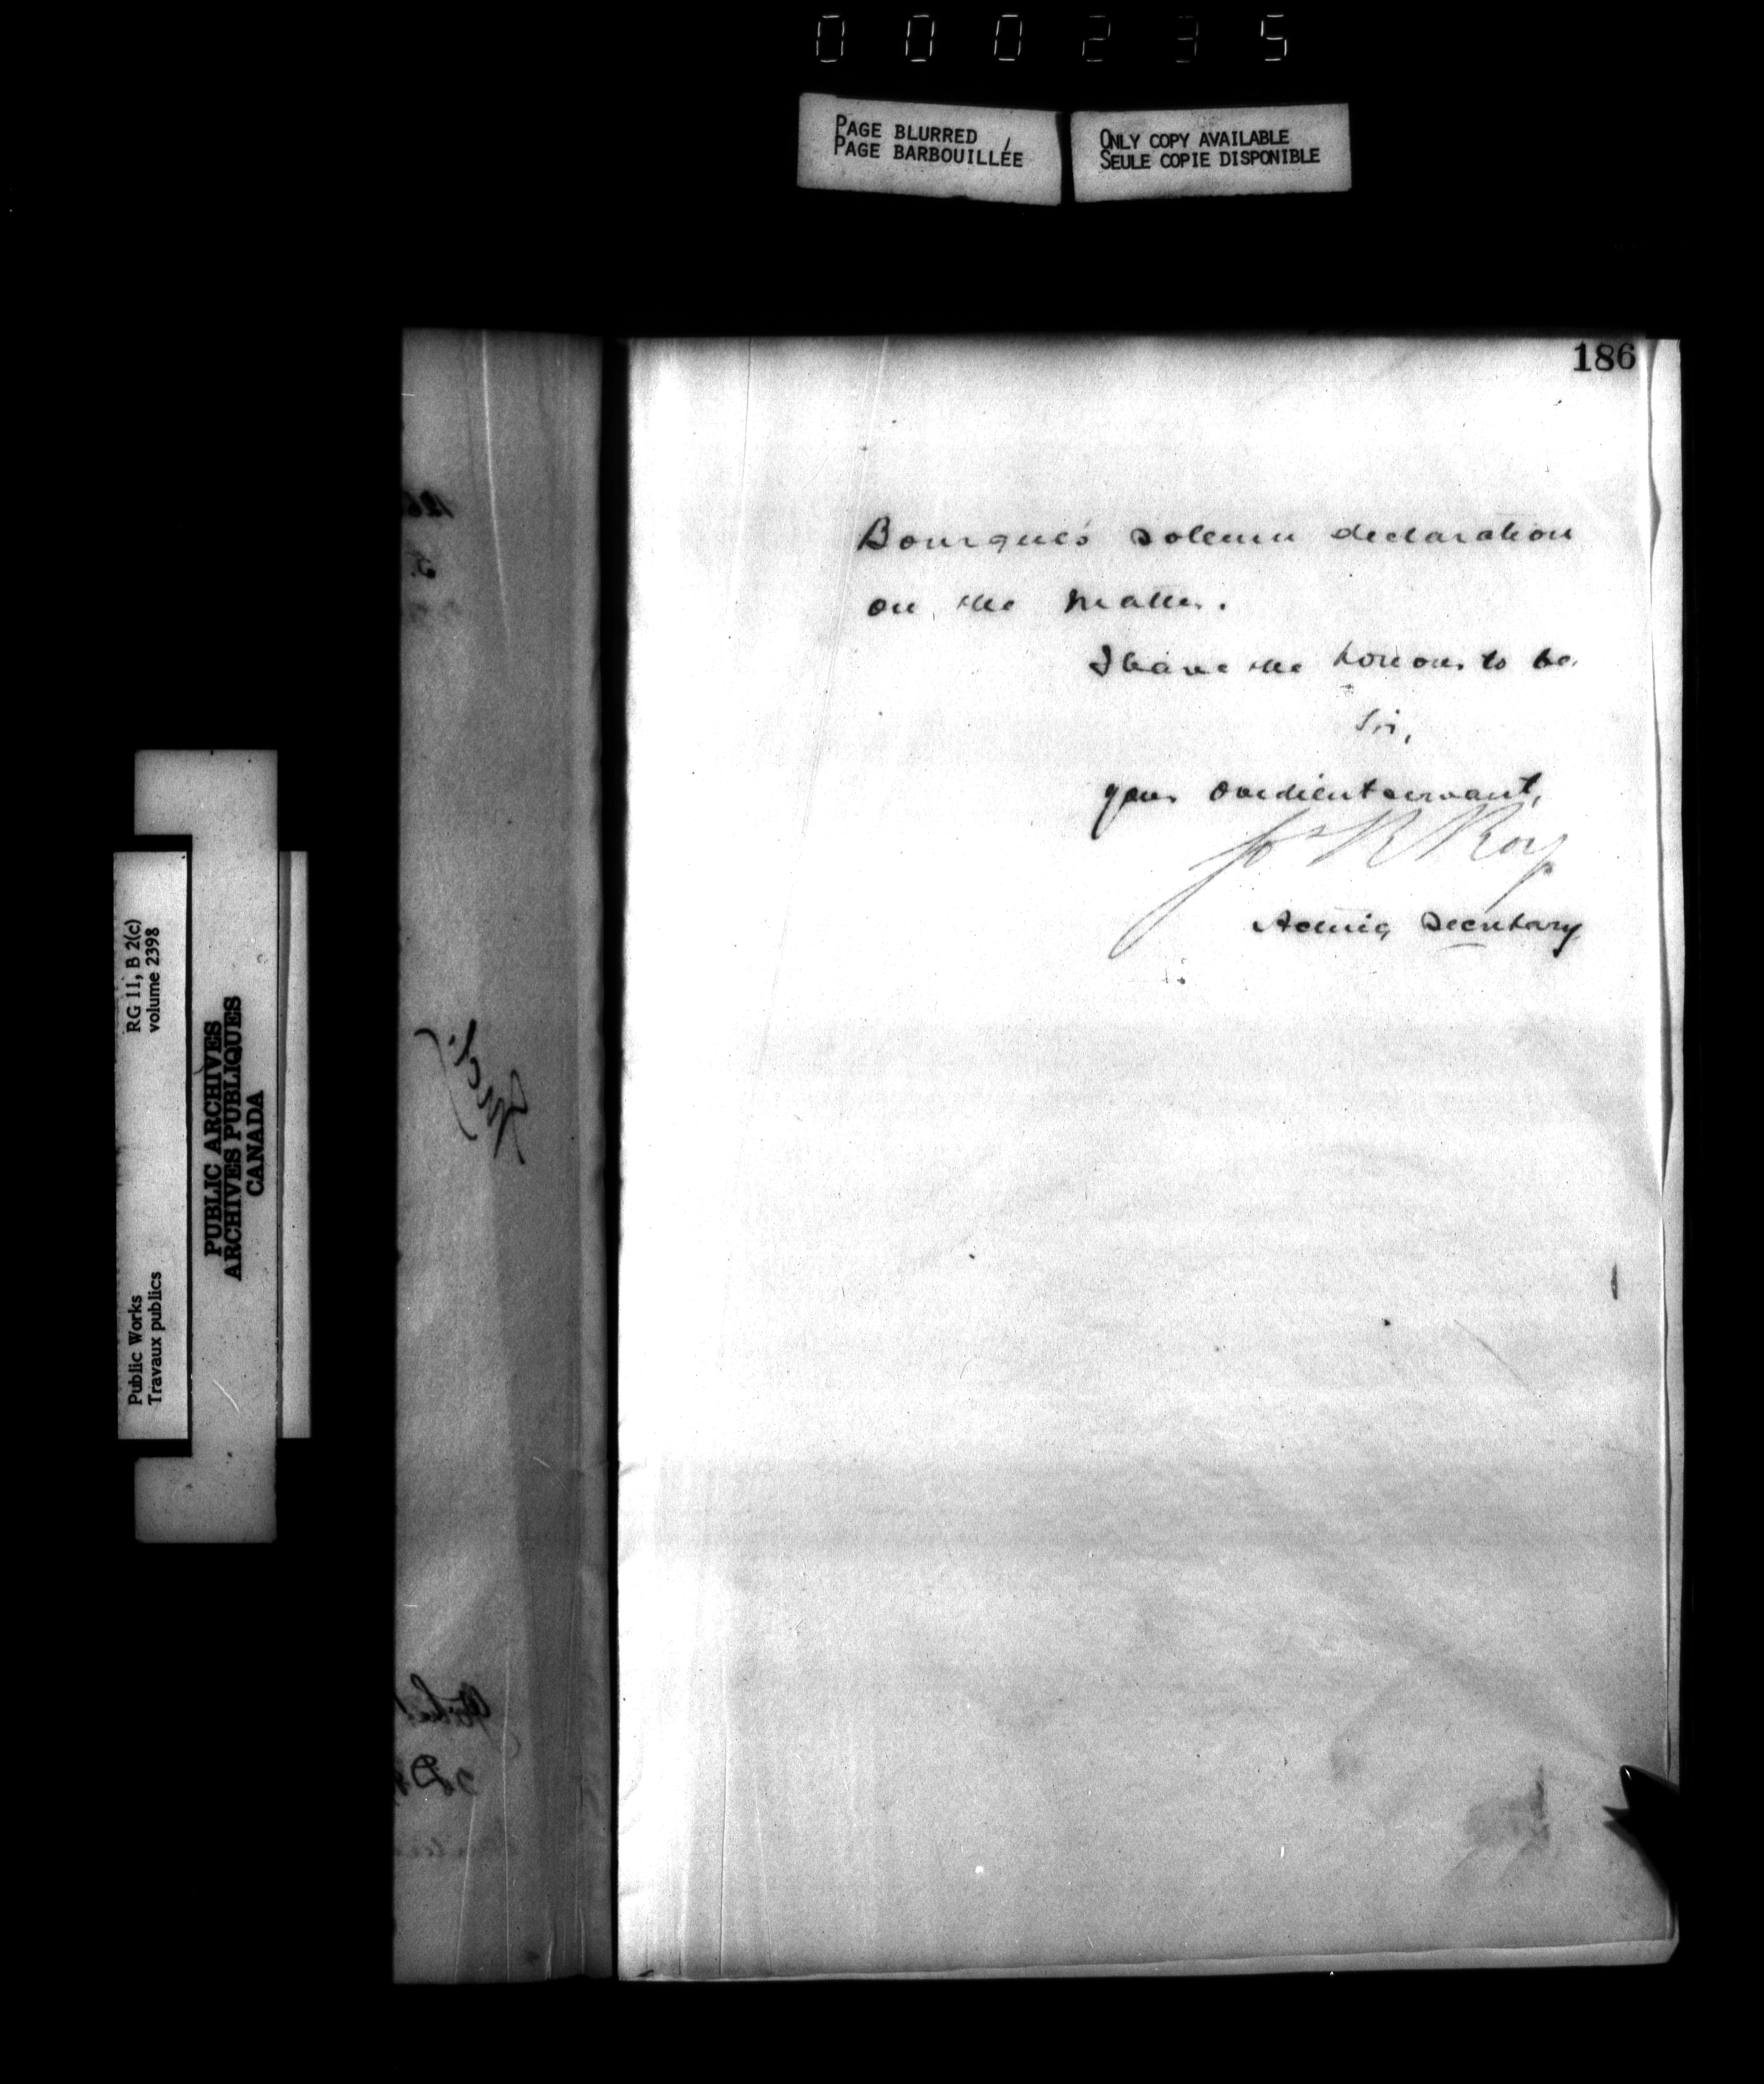 000235
PAGE BLURRED
PAGE BARBOUILLÉE
ONLY COPY AVAILABLE
SEULE COPIE DISPONIBLE
186
Bourque's solemn declaration
on the matter.
I have the honour to be
Sir,
your obedient servant,
Jos R Roy
Acting Secretary
RG 11, B 2(c)
volume 2398
PUBLIC ARCHIVES
ARCHIVES PUBLIQUES
CANADA
Public Works
Travaux publics